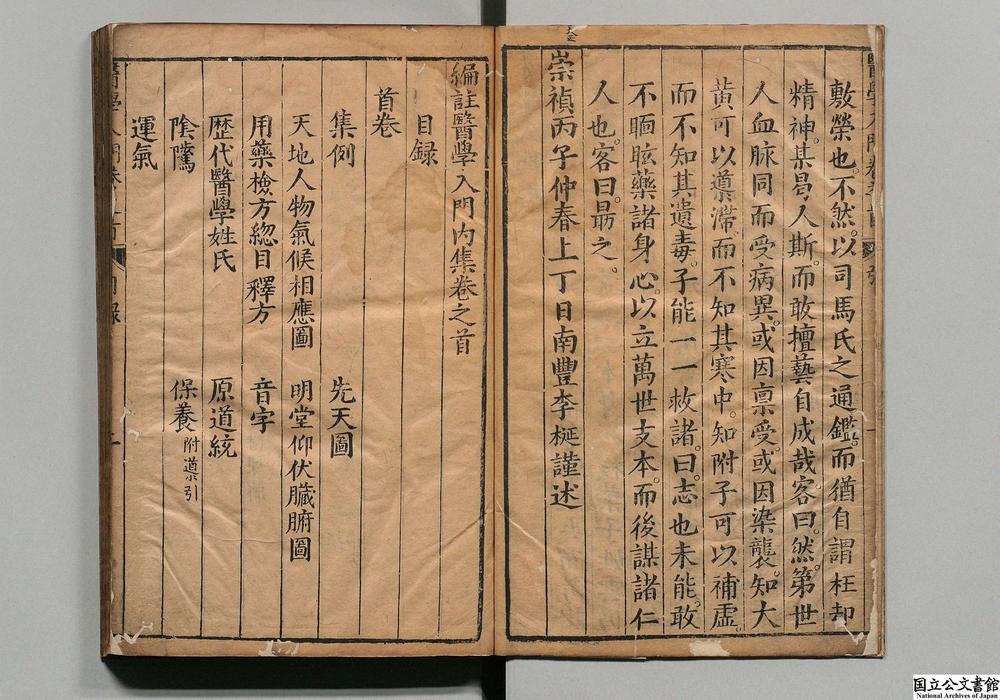 敷榮也。不然。以司馬氏之通鑑。而猶自謂枉却
精神。某曷人斯。而敢擅藝自成哉。客曰。然。第世
人血脉同而受病異。或因禀受。或因染襲。知大
黃可以導滯。而不知其寒中。知附子可以補虛。
而不知其遺毒。子能一一救諸。曰。志也未能。敢
不瞑眩藥諸身心。以立萬世支本。而後謀諸仁
人也。客曰。勗之。
崇禎丙子仲春上丁日南豐李梴謹述
編註醫學入門內集卷之首
目録
首卷
集例 先天圖
天地人物氣候相應圖 明堂仰伏臟腑圖
用藥檢方緫目 釋方 音字
歷代醫學姓氏 原道統
陰隲 保養 附導引
運氣
国立公文書館
National Archives of Japan